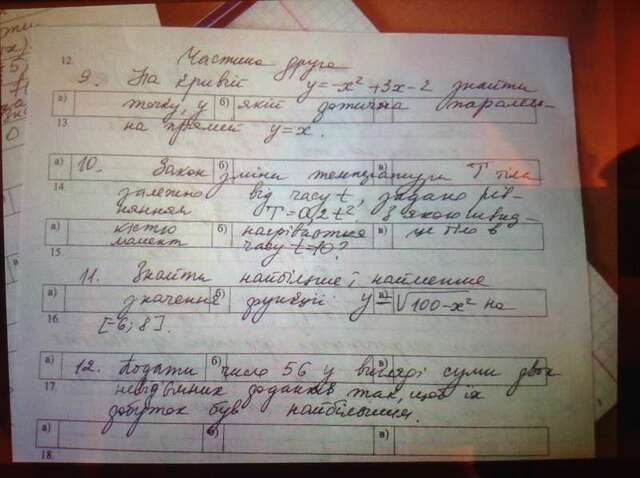 12.
Частина друга
9. На кривій y=-x²+3x-2 знайти
а) точку, у б) якій дотична паралель-
13 на прямій y=x.
а) 10. Закон б) зміни температури в) T тіла
14 залежно від часу t, задано рів-
нянням T=0,2t². З якою швид-
а) кістю б) нагрівається в) це тіло в
15. момент часу t=10?
11. Знайти найбільше і найменше
а) значення б) функції: y = в) √100-x² на
16. [-6; 8].
а) 12. Подати б) число 56 у вигляді суми в) двох
17. невід'ємних доданків так, щоб їх
добуток був найбільшим.
а) б) в)
18.